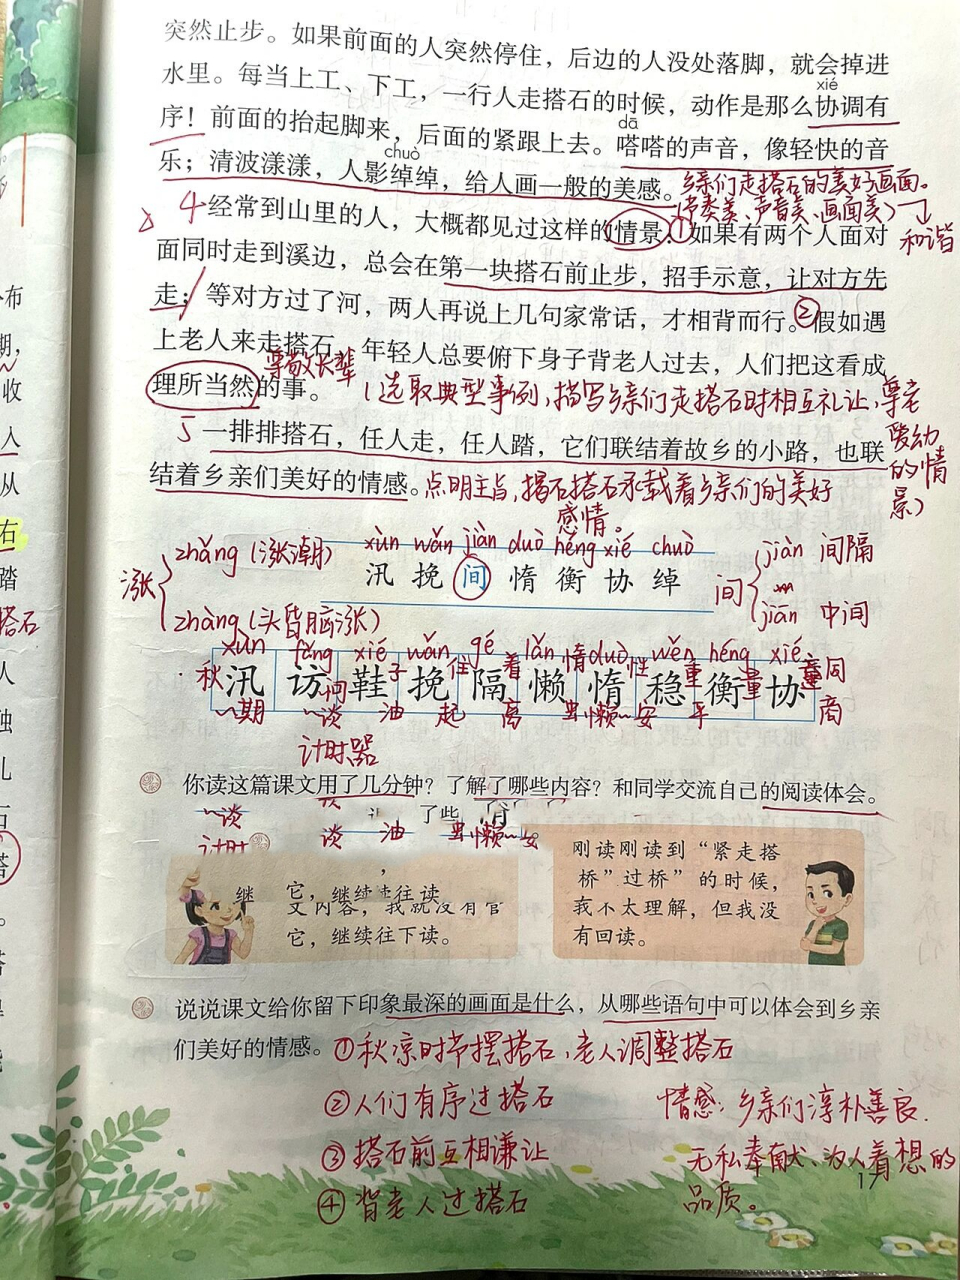 突然止步。如果前面的人突然停住，后边的人没处落脚，就会掉进
水里。每当上工、下工，一行人走搭石的时候，动作是那么协调有
xié
序！前面的抬起脚来，后面的紧跟上去。嗒嗒的声音，像轻快的音
dā
乐；清波漾漾，人影绰绰，给人画一般的美感。
chuò
乡亲们走搭石的美好画面。
(节奏美、声音美、画面美)→和谐
4 经常到山里的人，大概都见过这样的情景：①如果有两个人面对
面同时走到溪边，总会在第一块搭石前止步，招手示意，让对方先
走；等对方过了河，两人再说上几句家常话，才相背而行。②假如遇
上老人来走搭石，年轻人总要俯下身子背老人过去，人们把这看成
尊敬长辈
理所当然的事。
(选取典型事例，描写乡亲们走搭石时相互礼让，尊老
爱幼的情景)
5 一排排搭石，任人走，任人踏，它们联结着故乡的小路，也联
结着乡亲们美好的情感。
点明主旨，搭石承载着乡亲们的美好
感情。
涨 zhǎng (涨潮)
zhàng (头昏脑涨)
xùn wǎn jiàn duò héng xié chuò
汛 挽 间 惰 衡 协 绰
间 jiàn 间隔
jiān 中间
xùn fǎng xié wǎn gé lǎn duò wěn héng xié
汛 访 鞋 挽 隔 懒 惰 稳 衡 协
计时器
你读这篇课文用了几分钟？了解了哪些内容？和同学交流自己的阅读体会。
~谈
计时
谈 油
它，继续往下读。
刚读刚读到“紧走搭
桥”过桥”的时候，
我不太理解，但我没
有回读。
说说课文给你留下印象最深的画面是什么，从哪些语句中可以体会到乡亲
们美好的情感。
①秋凉时节摆搭石，老人调整搭石
②人们有序过搭石
③搭石前互相谦让
④背老人过搭石
情感：乡亲们淳朴善良.
无私奉献、为人着想的
品质。
17
布
期，
收
人
从
右
踏
搭石
人
独
儿